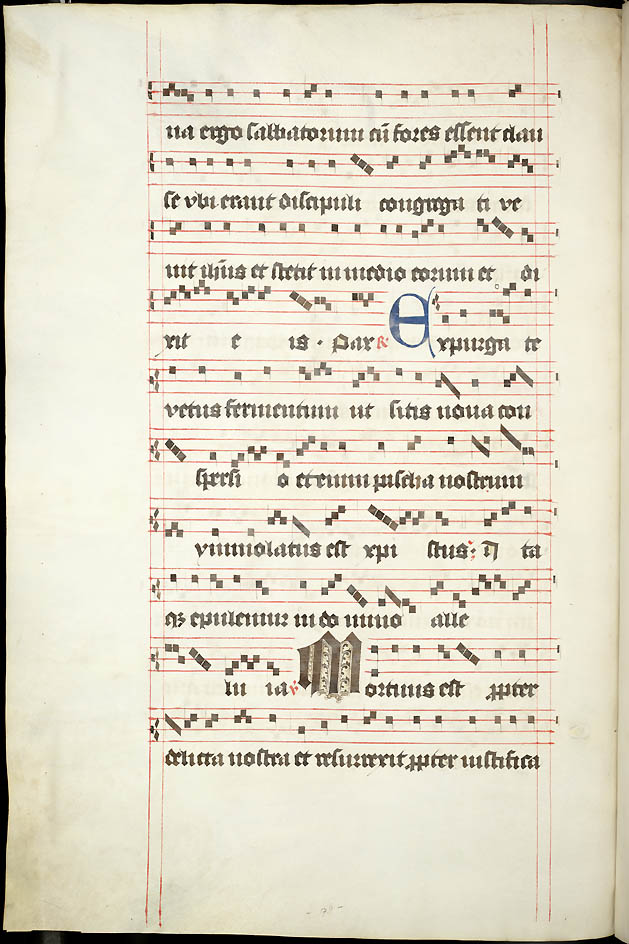 na ergo sabbatorum cū fores essent clau
se vbi erant discipuli congrega ti ve
nit ih̄us et stetit in medio eorum et di
xit e is · pax ℟ Expurga te
vetus fermentum ut sitis noua con
spersi o etenim pascha nostrum
ymmolatus est xpi stus : ita
qꝫ epulemur in do mino alle
lu ia ℣ Mortuus est ꝓpter
delicta nostra et resurrexit ꝓpter iustifica